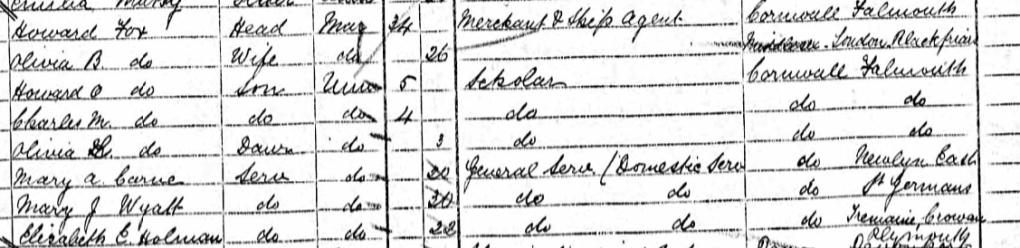 Howard Fox Head Mar 34 Merchant & Ship Agent Cornwall Falmouth
Olivia B. do Wife do 26 Middlesex London Blackfriars
Howard O do Son Unm 5 Scholar Cornwall Falmouth
Charles M. do do do 4 do do do
Olivia do Daur do 3 do do do
Mary A. Carne Serv do 20 General Serv (Domestic Serv do Newlyn East
Mary J Wyatt do do 20 do do do St Germans
Elizabeth E. Holman do do 22 do do do Crowan
Plymouth